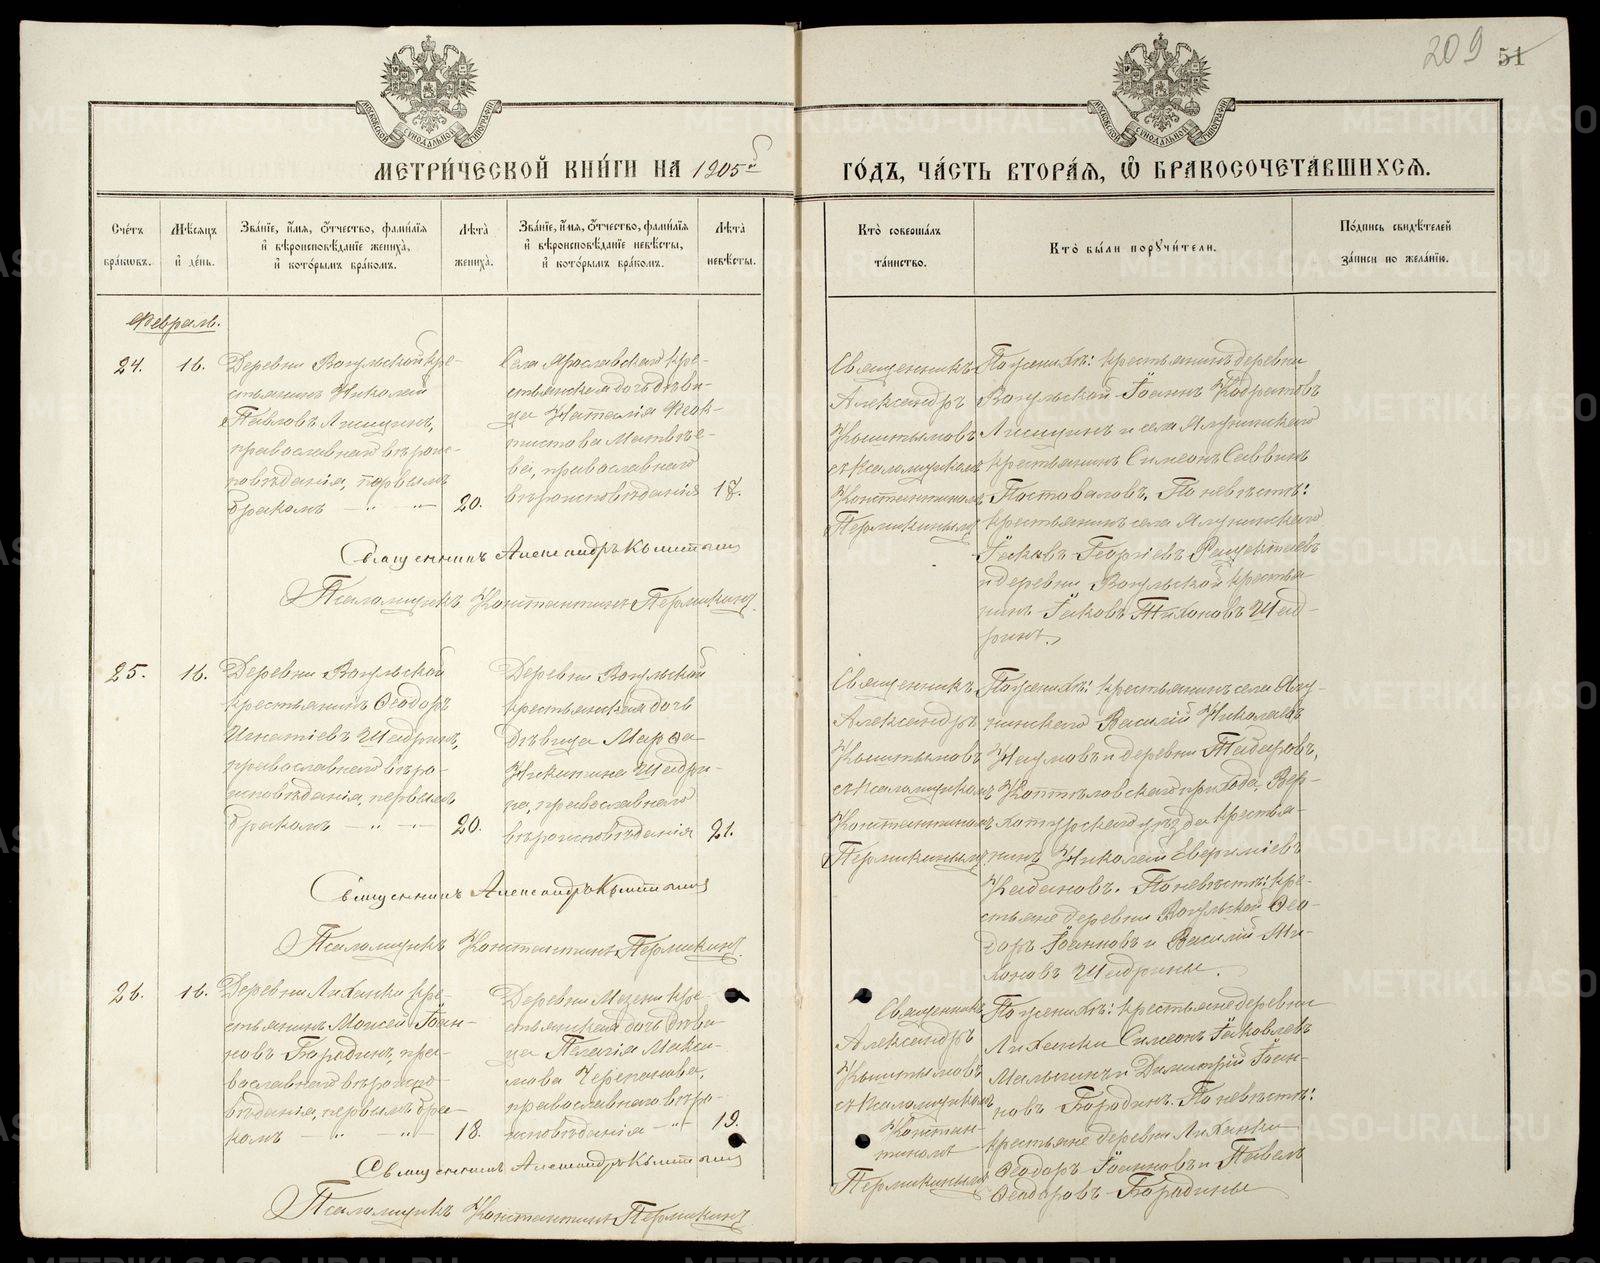 209 51
МЕТРИ́ЧЕСКОЙ КНИ́ГИ НА 1905й
ГО́ДЪ, ЧА́СТЬ ВТОРА́Я, Ѡ БРАКОСОЧЕТА́ВШИХСЯ.
Сче́тъ бра́кωвъ.
Мѣ́сяцъ и҆ де́нь.
Зва́нїе, и҆́мя, ѻ҆́тчество, фами́лїя
и҆ вѣроисповѣ́данїе жениха̀,
и҆ кото́рымъ бра́комъ.
Лѣ́та
жениха̀.
Зва́нїе, и҆́мя, ѻ҆́тчество, фами́лїя
и҆ вѣроисповѣ́данїе невѣ́сты,
и҆ кото́рымъ бра́комъ.
Лѣ́та
невѣ́сты.
Кто̀ соверша́лъ
та́инство.
Кто̀ бы́ли порꙋчи́тели.
По́дпись свидѣ́телей
за́писи по жела́нїю.
Февраль.
24.
16.
Деревни Вогульской кре-
стьянинъ Николай
Павловъ Лисицинъ,
православнаго вѣроис-
повѣданія, первымъ
бракомъ — " —
20.
Села Ярославскаго кре-
стьянская дочь дѣви-
ца Наталія Феок-
тистова Матвѣе-
ва, православнаго
вѣроисповѣданія
18.
Священникъ
Александръ
Кыштымовъ
съ псаломщикомъ
Константиномъ
Пермикинымъ
По женихѣ: крестьянинъ деревни
Вогульской Іоаннъ Кодратовъ
Лисицинъ и села Ялунинскаго
крестьянинъ Симеонъ Саввинъ
Постоваловъ. По невѣстѣ:
крестьянинъ села Ялунинскаго
Іаковъ Георгіевъ
и деревни Вогульской крестья-
нинъ Іаковъ Тихоновъ Шад-
ринъ.
Священникъ Александръ Кыштымовъ
Псаломщикъ Константинъ Пермикинъ.
25.
16.
Деревни Вогульской
крестьянинъ Ѳеодоръ
Игнатіевъ Шадринъ,
православнаго вѣро-
исповѣданія, первымъ
бракомъ — " —
20.
Деревни Вогульской
крестьянская дочь
дѣвица Марѳа
Никитина Шадри-
на, православнаго
вѣроисповѣданія
21.
Священникъ
Александръ
Кыштымовъ
съ псаломщикомъ
Константиномъ
Пермикинымъ
По женихѣ: крестьянинъ села Ялу-
нинскаго Василій Николаевъ
Наумовъ и деревни Табаровъ,
Коптѣловскаго прихода, Вер-
хотурскаго уѣзда крестья-
нинъ Николай Евѳиміевъ
Кабановъ. По невѣстѣ: кре-
стьяне деревни Вогульской Ѳео-
доръ Іоанновъ и Василій Ти-
хоновъ Шадрины.
Священникъ Александръ Кыштымовъ
Псаломщикъ Константинъ Пермикинъ.
26.
16.
Деревни Лиханки кре-
стьянинъ Моисей Іоан-
новъ Бородинъ, пра-
вославнаго вѣроиспо-
вѣданія, первымъ бра-
комъ — " — " —
18.
Деревни Мезени кре-
стьянская дочь дѣви-
ца Пелагія Макси-
мова Черепанова,
православнаго вѣро-
исповѣданія — " —
19.
Священникъ
Александръ
Кыштымовъ
съ псаломщикомъ
Констан-
тиномъ
Пермикинымъ
По женихѣ: крестьяне деревни
Лиханки Симеонъ Іаковлевъ
Малыгинъ и Димитрій Іоан-
новъ Бородинъ. По невѣстѣ:
крестьяне деревни Лиханки
Ѳеодоръ Іоанновъ и Павелъ
Ѳеодоровъ Бородины
Священникъ Александръ Кыштымовъ
Псаломщикъ Константинъ Пермикинъ
METRIKI.GASO-URAL.RU